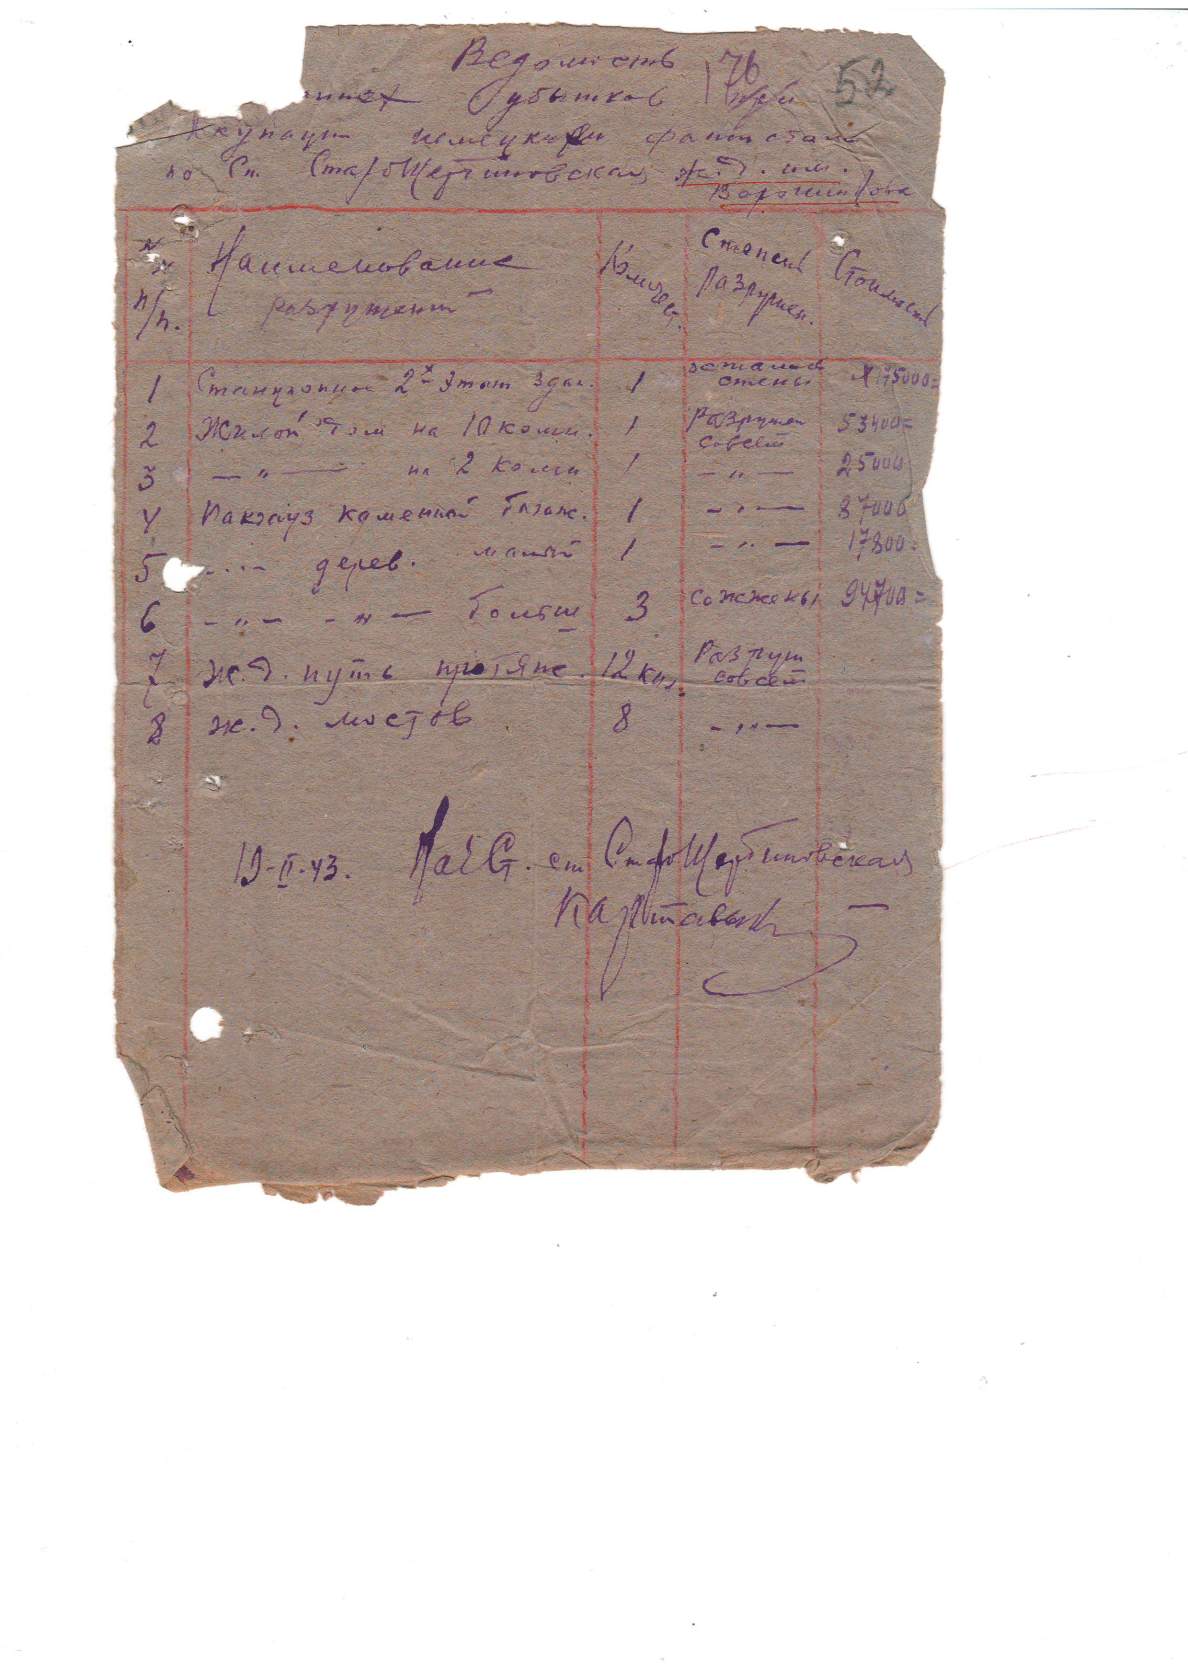 Ведомость
76
52
убытков при
оккупации немецкими фашистами
по Ст. СтароЩербиновская ж.д. им.
Ворошилова
№№ п/п. Наименование разрушений Количест. Степень Разрушен. Стоимость
1 Станционное 2х этаж здан. 1 остались стены 175000=
2 Жилой дом на 10 комн. 1 Разрушен совсем 53400=
3 —„— на 2 комн 1 —„— 25000
4 Пакгауз каменный багаж. 1 —„— 37000
5 —„— дерев. малый 1 —„— 17800=
6 —„— —„— больш 3 сожжены 94700=
7 ж.д. путь протяж. 12 км. Разруш совсем
8 ж.д. мостов 8 —„—
19-II-43. НачСт. ст СтароЩербиновская